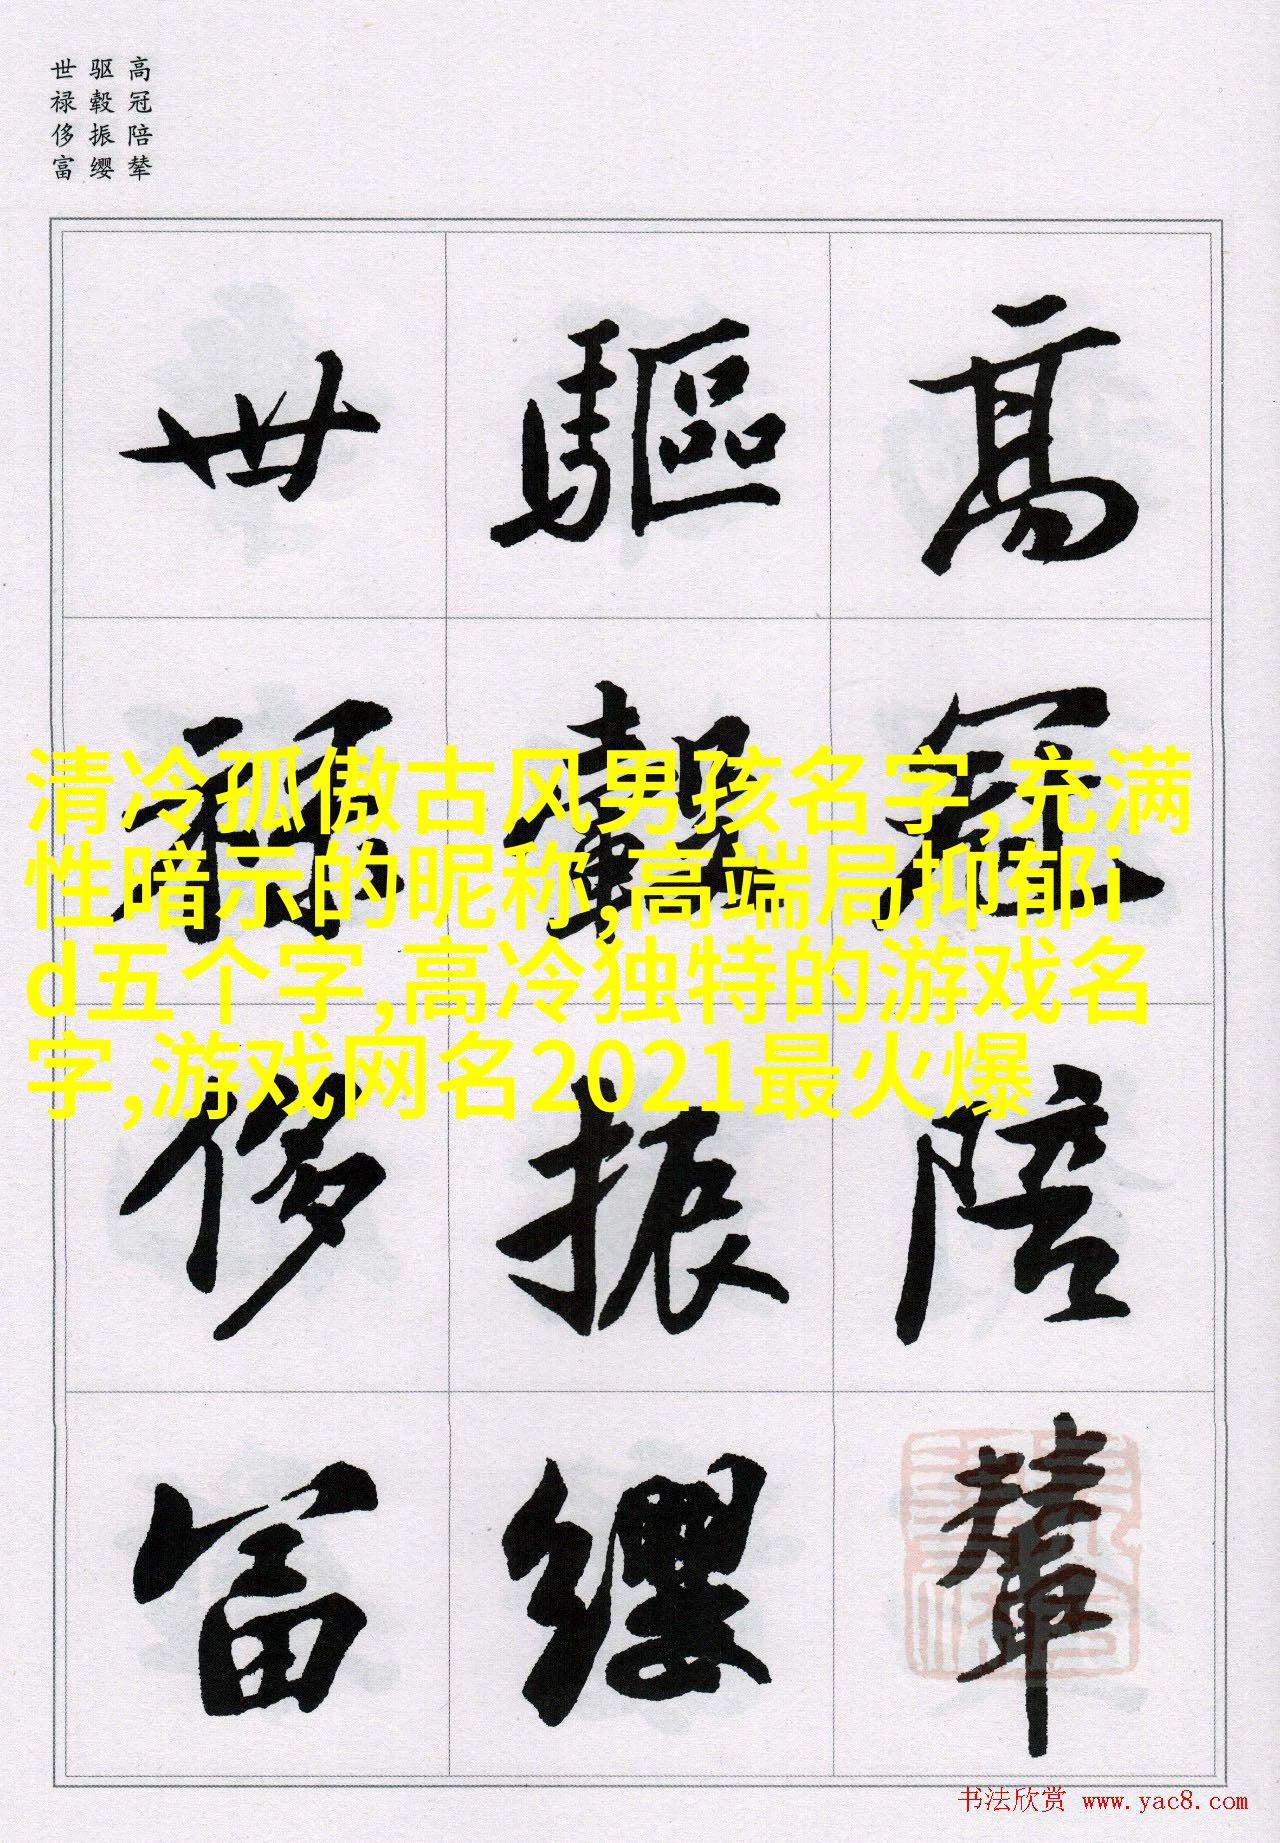 高冠陪辇
驱毂振缨
世禄侈富
高冠陪輦
驅轂振纓
世禄侈富
清冷孤傲古风男孩名字,充满
性暗示的昵称,高端局抑郁i
d五个字,高冷独特的游戏名
字,游戏网名2021最火爆
书法欣赏 www.yac8.com